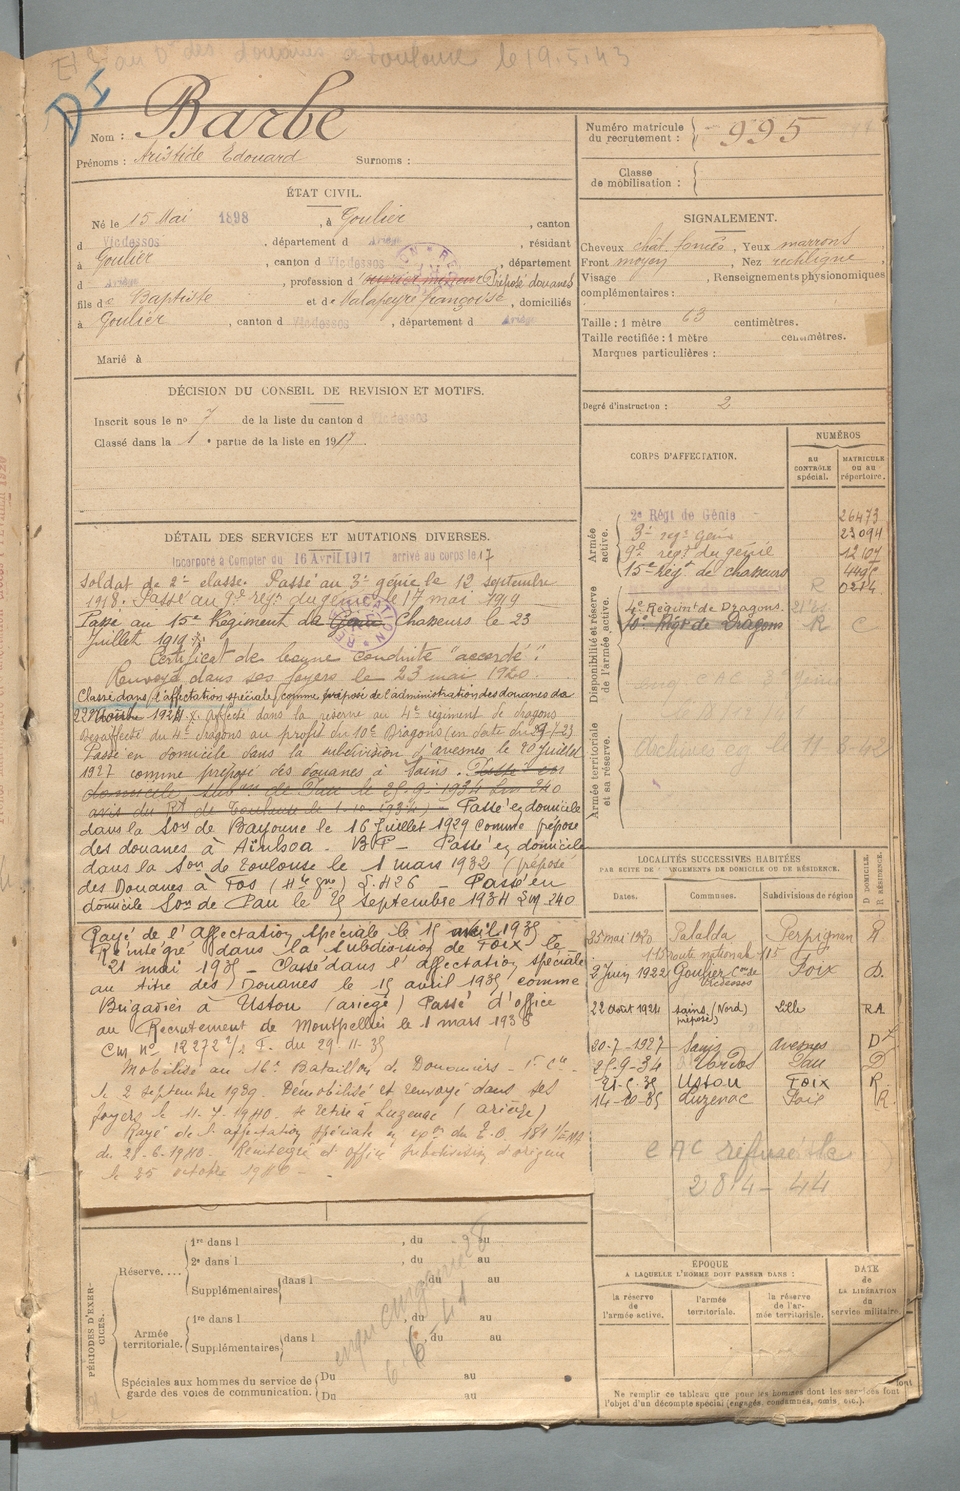 au D° des douanes à Toulouse le 19.5.43
DI
Nom : Barbe
Prénoms : Aristide Edouard Surnoms :
ÉTAT CIVIL.
Né le 15 Mai 1898, à Goulier, canton
d Vicdessos, département d Ariège, résidant
à Goulier, canton d Vicdessos, département
d Ariège, profession d Préposé douanes
fils de Baptiste et de Dalapeyre Françoise, domiciliés
à Goulier, canton d Vicdessos, département d Ariège
Marié à
DÉCISION DU CONSEIL DE REVISION ET MOTIFS.
Inscrit sous le nº 7 de la liste du canton d Vicdessos
Classé dans la 1e partie de la liste en 1917.
DÉTAIL DES SERVICES ET MUTATIONS DIVERSES.
Incorporé à Compter du 16 Avril 1917 arrivé au corps le 17
Soldat de 2e classe. Passé au 3e génie le 12 septembre
1918. Passé au 9e régt du génie le 17 mai 1919
Passé au 15e Régiment de Chasseurs le 23
Juillet 1919.
Certificat de bonne conduite "accordé".
Renvoyé dans ses foyers le 23 mai 1920.
Classé dans l'affectation spéciale comme préposé de l'administration des douanes du
22 1924. Affecté dans la réserve au 4e régiment de dragons
Desaffecté du 4e dragons au profit du 10e Dragons (en date du
Passé en domicile dans la subdivision d'avesnes le 20 Juillet
1927 comme préposé des douanes à Sains. Passé en
domicile subon de Pau le 25-9-1934
avis du Rt de Toulouse le 1-10-1934) - Passé en domicile
dans la Son de Bayonne le 16 Juillet 1929 comme préposé
des douanes à Aïnhoa - B.P - Passé en domicile
dans la Son de Toulouse le 1 mars 1932 (préposé
des Douanes à Fos (Hte Gne) S. 426 - Passé en
domicile Son de Pau le 25 Septembre 1934 240
Rayé de l'Affectation spéciale le 15 avril 1935
Réintégré dans la subdivision de Foix le
21 mai 1935 - Classé dans l'affectation spéciale
au titre des Douanes le 15 avril 1935 comme
Brigadier à Ustou (ariège) Passé d'office
au Recrutement de Montpellier le 1 mars 1936
Cm nº 12272 1/2 F. du 29-11-35
Mobilisé au 16e Bataillon de Douaniers - 1e Cie -
le 2 septembre 1939. Démobilisé et renvoyé dans ses
foyers le 11-7-1940. se retire à Luzenac (ariège)
Rayé de l'affectation spéciale
du 25-6-1940. Réintégré d'office subdivision d'origine
le 25 octobre 1940 -
PÉRIODES D'EXERCICES.
Réserve....
1re dans l , du au
2e dans l , du au
Supplémentaires dans l du au
Armée territoriale.
1re dans l , du au
Supplémentaires dans l du au
Spéciales aux hommes du service de garde des voies de communication.
Du au
Du au
Numéro matricule du recrutement : 995
Classe de mobilisation :
SIGNALEMENT.
Cheveux chât. foncés, Yeux marrons,
Front moyen, Nez rectiligne,
Visage , Renseignements physionomiques
complémentaires :
Taille : 1 mètre 63 centimètres.
Taille rectifiée : 1 mètre centimètres.
Marques particulières :
Degré d'instruction : 2
CORPS D'AFFECTATION.
NUMÉROS
AU CONTRÔLE spécial.
MATRICULE OU AU répertoire.
Armée active.
2e Régt de Génie 26473
3e régt génie 23094
9e régt du génie
15e Régt de chasseurs
Disponibilité et réserve de l'armée active.
4e Régimt de Dragons. R
10e Régt de Dragons R C
Armée territoriale et sa réserve.
LOCALITÉS SUCCESSIVES HABITÉES
PAR SUITE DE CHANGEMENTS DE DOMICILE OU DE RÉSIDENCE.
Dates. Communes. Subdivisions de région D. DOMICILE. R. RÉSIDENCE.
25 mai 1920 Palalda Perpignan R
115 route nationale 115
2 Juin 1922 Goulier Cne de Vicdessos Foix D.
22 août 1924 Sains (Nord) (préposé) Lille RA
20-7-1927 Sains avesnes D
25-9-34 Urdos Pau D
21-5-35 Ustou Foix R
14-10-35 Luzenac Foix R.
284-44
ÉPOQUE
A LAQUELLE L'HOMME DOIT PASSER DANS :
la réserve de l'armée active.
l'armée territoriale.
la réserve de l'armée territoriale.
DATE de LA LIBÉRATION du service militaire.
Ne remplir ce tableau que pour les hommes dont les services font
l'objet d'un décompte spécial (engagés, condamnés, omis, etc.).